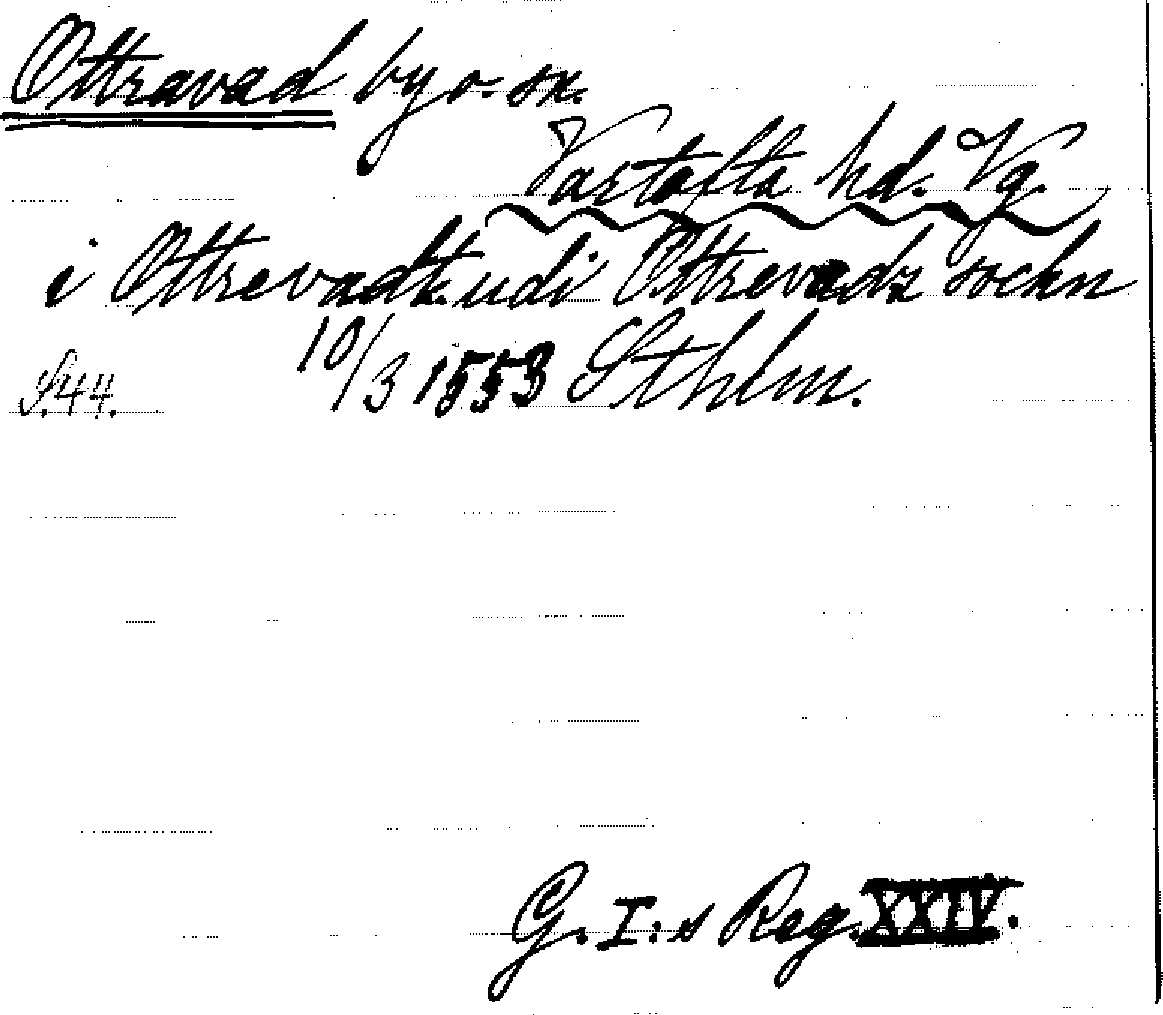 Ottravad by o. sn.
Vartofta hd. Vg.
i Ottrevadt udi Ottrevadz sochn
S.44. 10/3 1553 Sthlm.
G. I:s Reg. XXIV.